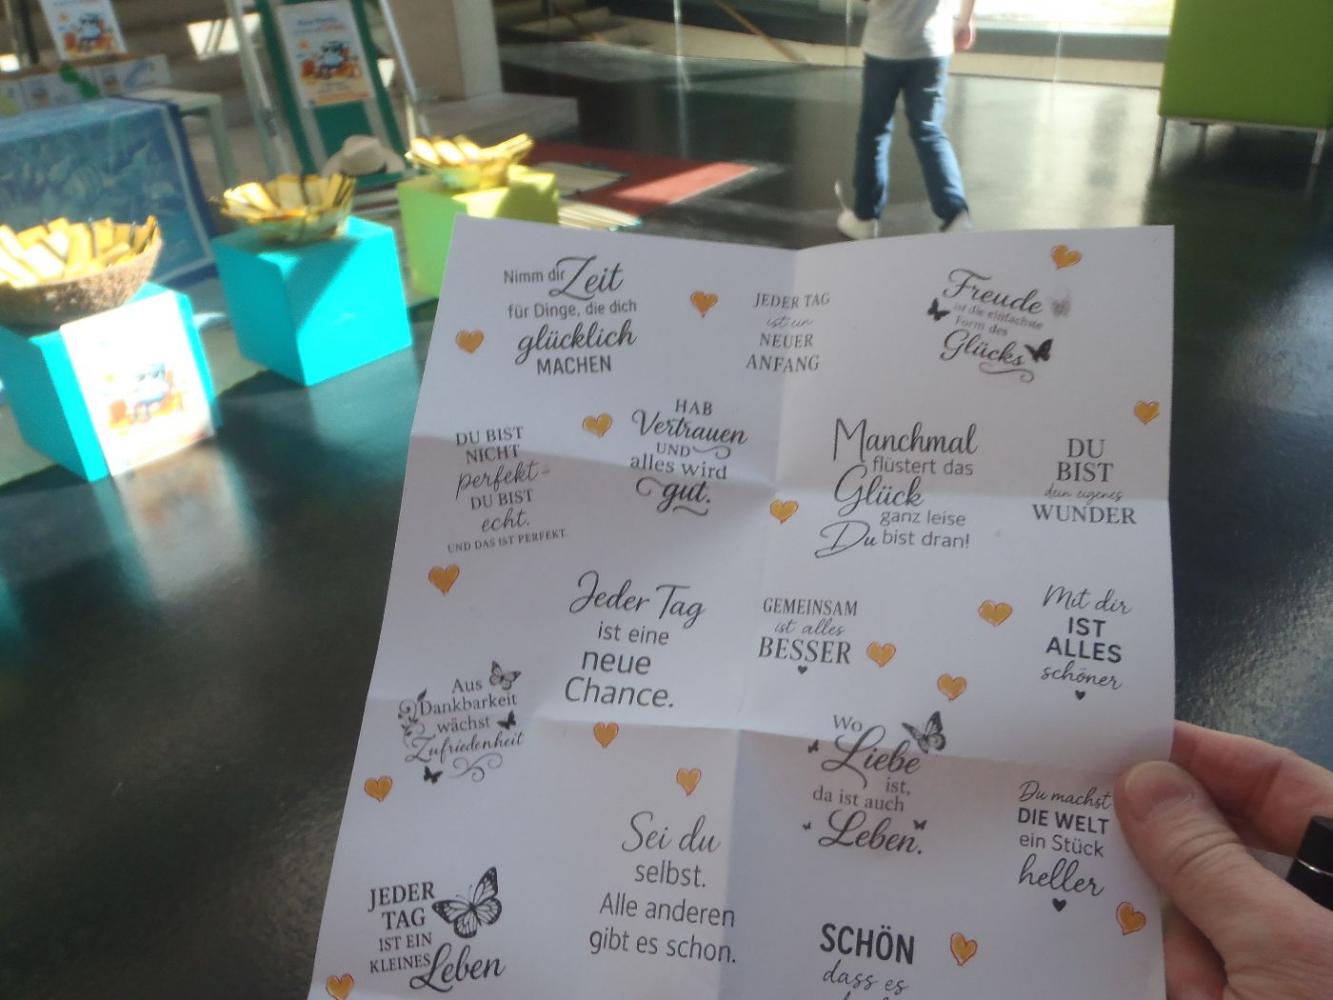 Nimm dir Zeit
für Dinge, die dich
glücklich
MACHEN
JEDER TAG
ist ein
NEUER
ANFANG
Freude
ist die einfachste
Form des
Glücks
DU BIST
NICHT
perfekt-
DU BIST
echt.
UND DAS IST PERFEKT.
HAB
Vertrauen
UND
alles wird
gut.
Manchmal
flüstert das
Glück
ganz leise
Du bist dran!
DU
BIST
dein eigenes
WUNDER
Jeder Tag
ist eine
neue
Chance.
GEMEINSAM
ist alles
BESSER
Mit dir
IST
ALLES
schöner
Aus
Dankbarkeit
wächst
Zufriedenheit
Wo
Liebe
ist,
da ist auch
Leben.
Du machst
DIE WELT
ein Stück
heller
Sei du
selbst.
Alle anderen
gibt es schon.
JEDER
TAG
IST EIN
KLEINES
Leben
SCHÖN
dass es